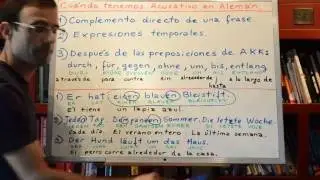 Cuándo tenemos Acusativo en Alemán
1) Complemento directo de una frase.
2) Expresiones temporales.
3) Después de las preposiciones de AKK:
durch, für, gegen, ohne, um, bis, entlang
a través de para contra sin alrededor de hasta a lo largo de
1) Er hat einen blauen Bleistift.
El tiene un lápiz azul.
2) Jeden Tag. Den ganzen Sommer. Die letzte Woche.
Cada día. El verano entero. La última semana.
3) Der Hund läuft um das Haus.
El perro corre alrededor de la casa.